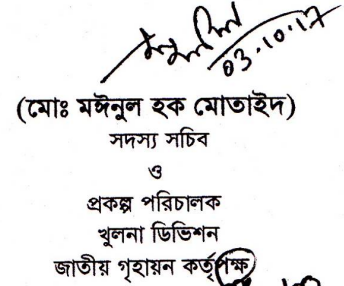 03.10.17
(মোঃ মঈনুল হক মোতাইদ)
সদস্য সচিব
ও
প্রকল্প পরিচালক
খুলনা ডিভিশন
জাতীয় গৃহায়ন কর্তৃপক্ষ